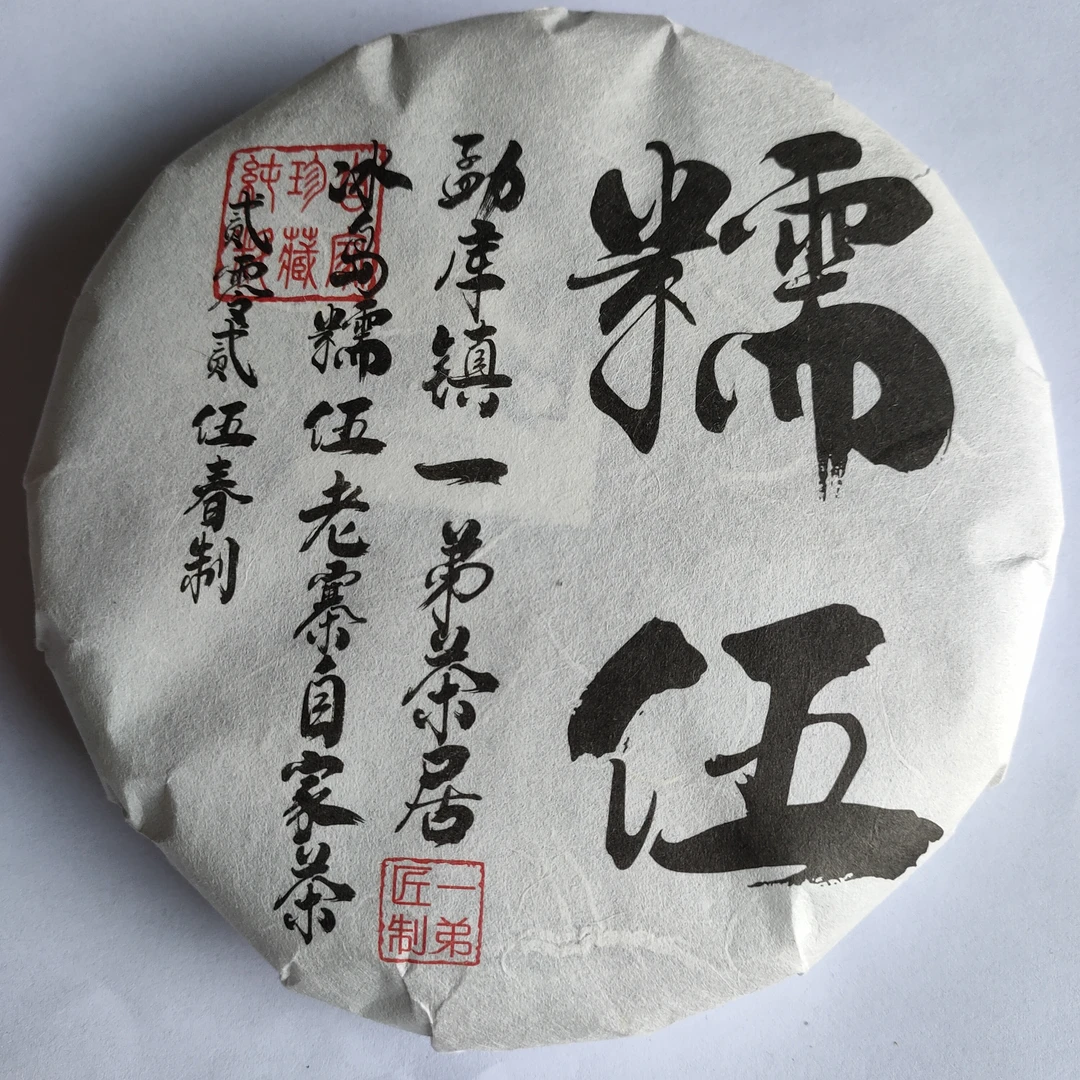 糯伍
勐库镇一弟茶居
冰岛糯伍老寨自家茶
贰零贰伍春制
珍藏
纯
一弟
匠制